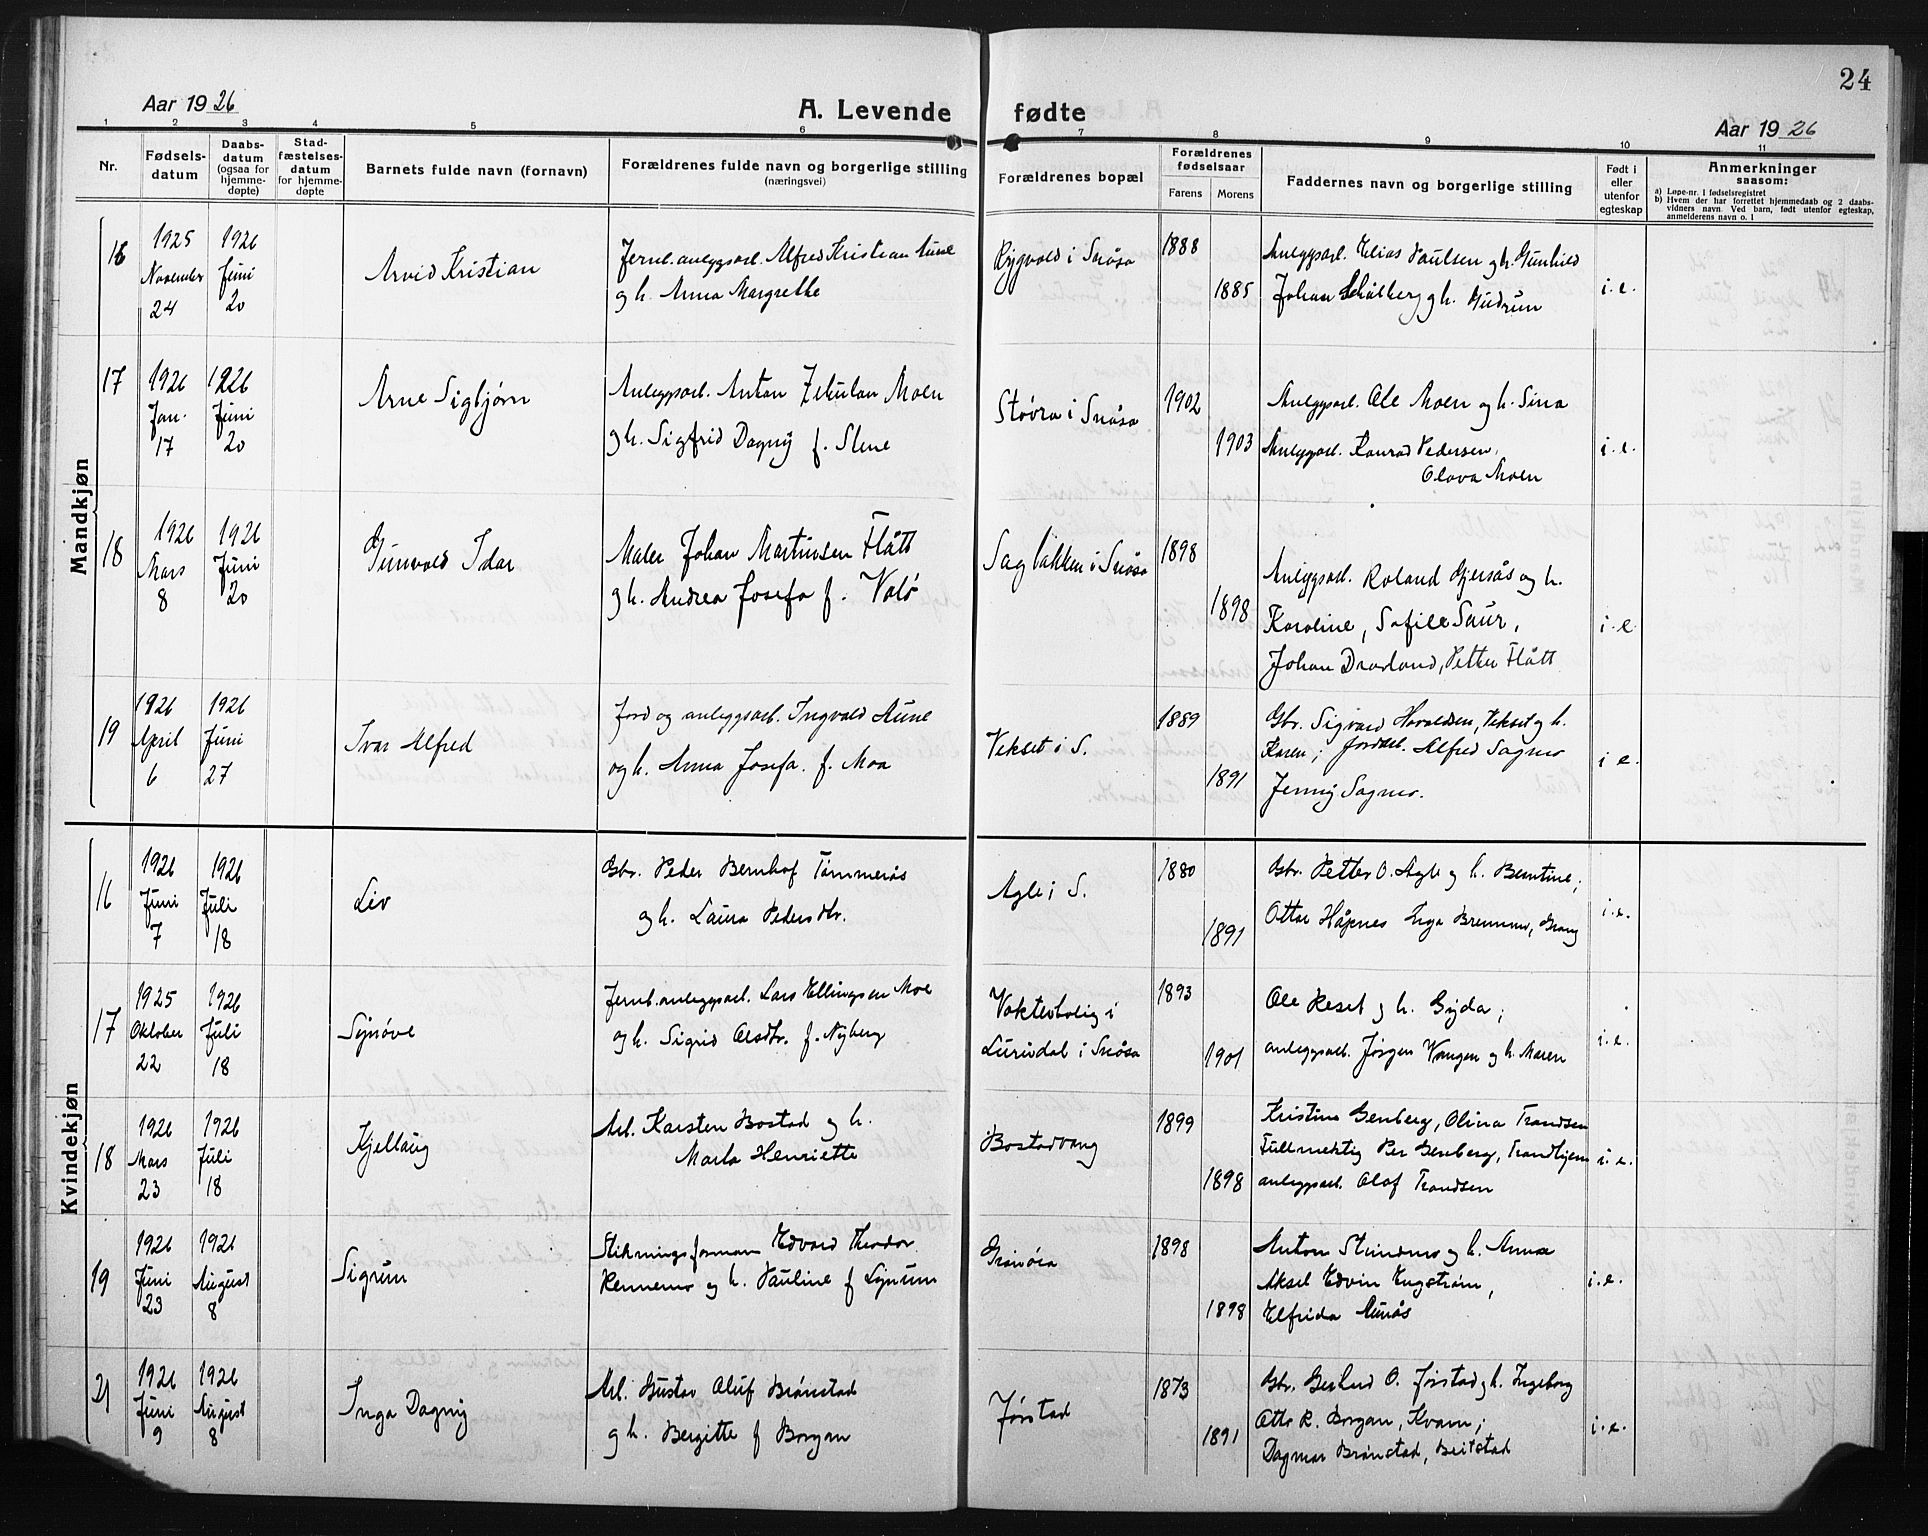 24
Aar 1926
A. Levende fødte
Aar 1926
1 2 3 4 5 6 7 8 9 10 11
Nr.
Fødsels-
datum
Daabs-
datum
(ogsaa for
hjemme-
døpte)
Stad-
fæstelses-
datum
for hjemme-
døpte
Barnets fulde navn (fornavn)
Forældrenes fulde navn og borgerlige stilling
(næringsvei)
Forældrenes bopæl
Forældrenes
fødselsaar
Farens Morens
Faddernes navn og borgerlige stilling
Født i
eller
utenfor
egteskap
Anmerkninger
saasom:
a) Løpe-nr. i fødselsregistret
b) Hvem der har forrettet hjemmedaab og 2 daabs-
vidners navn. Ved barn, født utenfor egteskap,
anmelderens navn o. l
Mandkjøn
16
1925
November
24
1926
Juni
20
Arvid Kristian
Jernb. anleggsarb. Alfred Kristian Aune
og h. Anna Margrethe
i Snåsa
1888
1885
Anleggsarb. Elias Paulsen og h. Gunhild
Johan og h. Gudrun
i. e.
17
1926
Jan.
17
1926
Juni
20
Arne Sigbjørn
Anleggsarb. Anton Moen
og h. Sigfrid Dagny f. Slene
Støvra i Snåsa
1902
1903
Anleggsarb. Ole Moen og h. Sina
Anleggsarb. Konrad Pedersen,
Olava Moen
i. e.
18
1926
Mars
8
1926
Juni
20
Gunvald Idar
Maler Johan Martinsen Flått
og h. Andrea Josefa f. Valø
Sagbakken i Snåsa
1898
1898
Anleggsarb. Roland Gjersås og h.
Karoline, Saur,
Johan Dravland, Petter Flått
i. e.
19
1926
April
6
1926
Juni
27
Ivar Alfred
Jord og anleggsarb. Ingvald Aune
og h. Anna Josefa. f. Moa
Vekset i S.
1889
1891
Gbr. Sigvard Haraldsen, Vekset og h.
Karen; Jordarb. Alfred Sagmo
Jenny Sagmo.
i e.
Kvindekjøn
16
1926
Juni
7
1926
Juli
18
Liv
Gbr. Peder Bernhof Tømmerås
og h. Laura Pedersdtr.
Agle i S.
1880
1891
Gbr. Petter O. Agle og h. Berntine;
Ottar Håpnes Inga Bremmo, Grong
i. e.
17
1925
Oktober
22
1926
Juli
18
Synøve
Jernb. anleggsarb. Lars Ellingsen Moe
og h. Sigrid Olsdtr. f. Nyberg
Vokterbolig i
Lurudal i Snåsa
1893
1901
Ole Reset og h. Gyda;
anleggsarb. Jørgen Vangen og h. Maren
i. e.
18
1926
Mars
23
1926
Juli
18
Kjellaug
Arb. Karsten Bostad og h.
Marta Henriette
Bostadvang
1899
1898
Kristine Genberg, Olina Trondsen
Fullmektig Per Genberg, Trondhjem
anleggsarb. Olaf Trondsen
i. e.
19
1926
Juni
23
1926
August
8
Sigrun
Stikningsformann Edvard Theodor
Rennemo og h. Pauline f Lynum
Grønøra
1898
1898
Anton Strindmo og h. Anna
Aksel Edvin Engstrøm,
Elfrida Aunås
i. e.
21
1926
Juni
9
1926
August
8
Inga Dagny
Arb. Gustav Oluf Brønstad
og h. Bergitte f Borgan
Jørstad
1873
1891
Gbr. Gerhard O. Jørstad og h. Ingeborg
Otto R. Borgan, Kvam;
Dagmar Brønstad, Beitstad
i. e.